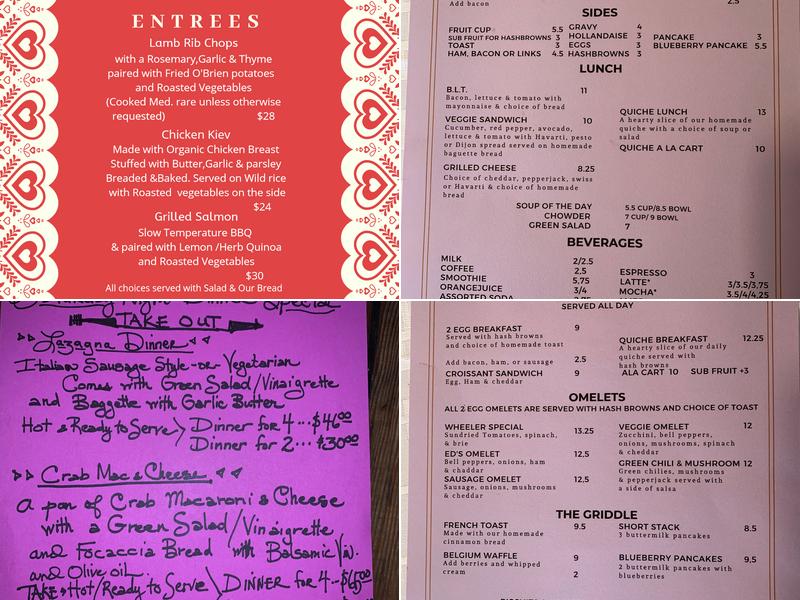 ENTREES
Lamb Rib Chops
with a Rosemary,Garlic & Thyme
paired with Fried O'Brien potatoes
and Roasted Vegetables
(Cooked Med. rare unless otherwise
requested) $28
Chicken Kiev
Made with Organic Chicken Breast
Stuffed with Butter,Garlic & parsley
Breaded &Baked. Served on Wild rice
with Roasted vegetables on the side
$24
Grilled Salmon
Slow Temperature BBQ
& paired with Lemon /Herb Quinoa
and Roasted Vegetables
$30
All choices served with Salad & Our Bread
Add bacon 2.5
SIDES
FRUIT CUP 5.5
SUB FRUIT FOR HASHBROWNS 3
TOAST 3
HAM, BACON OR LINKS 4.5
GRAVY 4
HOLLANDAISE 3
EGGS 3
HASHBROWNS 3
PANCAKE 3
BLUEBERRY PANCAKE 5.5
LUNCH
B.L.T. 11
Bacon, lettuce & tomato with
mayonnaise & choice of bread
VEGGIE SANDWICH 10
Cucumber, red pepper, avocado,
lettuce & tomato with Havarti, pesto
or Dijon spread served on homemade
baguette bread
GRILLED CHEESE 8.25
Choice of cheddar, pepperjack, swiss
or Havarti & choice of homemade
bread
QUICHE LUNCH 13
A hearty slice of our homemade
quiche with a choice of soup or
salad
QUICHE A LA CART 10
SOUP OF THE DAY 5.5 CUP/8.5 BOWL
CHOWDER 7 CUP/ 9 BOWL
GREEN SALAD 7
BEVERAGES
MILK 2/2.5
COFFEE 2.5
SMOOTHIE 5.75
ORANGEJUICE 3/4
ASSORTED SODA
ESPRESSO 3
LATTE* 3/3.5/3.75
MOCHA* 3.5/4/4.25
Dinner Special
TAKE OUT
Lazagna Dinner
Italian Sausage Style -or- Vegetarian
Comes with Green Salad/Vinaigrette
and Baggette with Garlic Butter
Hot & Ready to Serve > Dinner for 4 ... $46.00
Dinner for 2 ... $30.00
Crab Mac & Cheese
A pan of Crab Macaroni & Cheese
with a Green Salad/Vinaigrette
and Focaccia Bread with Balsamic Vin.
and Olive oil
TAKE + Hot/Ready to Serve > DINNER for 4 -- $65.00
SERVED ALL DAY
2 EGG BREAKFAST 9
Served with hash browns
and choice of homemade toast
Add bacon, ham, or sausage 2.5
CROISSANT SANDWICH 9
Egg, Ham & cheddar
QUICHE BREAKFAST 12.25
A hearty slice of our daily
quiche served with
hash browns
ALA CART 10 SUB FRUIT +3
OMELETS
ALL 2 EGG OMELETS ARE SERVED WITH HASH BROWNS AND CHOICE OF TOAST
WHEELER SPECIAL 13.25
Sundried Tomatoes, spinach,
& brie
ED'S OMELET 12.5
Bell peppers, onions, ham
& cheddar
SAUSAGE OMELET 12.5
Sausage, onions, mushrooms
& cheddar
VEGGIE OMELET 12
Zucchini, bell peppers,
onions, mushrooms, spinach
& cheddar
GREEN CHILI & MUSHROOM 12
Green chilies, mushrooms
& pepperjack served with
a side of salsa
THE GRIDDLE
FRENCH TOAST 9.5
Made with our homemade
cinnamon bread
BELGIUM WAFFLE 9
Add berries and whipped
cream 2
SHORT STACK 8.5
3 buttermilk pancakes
BLUEBERRY PANCAKES 9.5
2 buttermilk pancakes with
blueberries